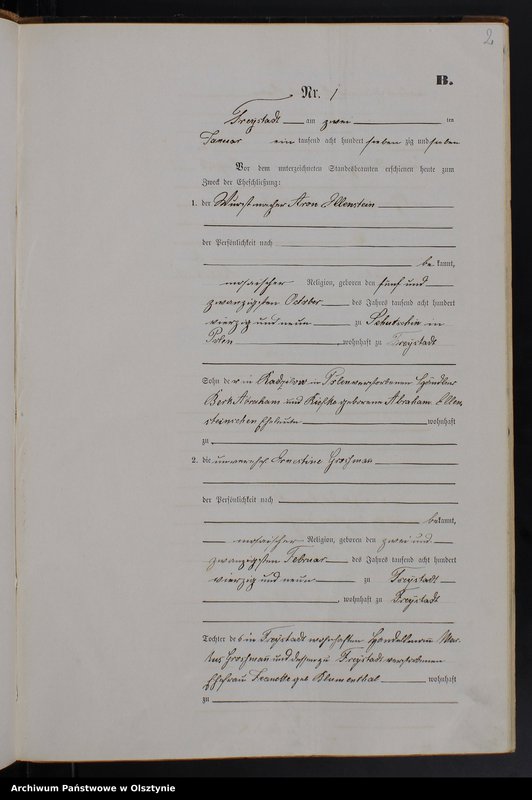 2
B.
Nr. 1
Freystadt am zwei ten
Januar ein tausend acht hundert sieben zig und sieben
Vor dem unterzeichneten Standesbeamten erschienen heute zum
Zweck der Eheschließung:
1. der Wurstmacher Aron Ellenstein
der Persönlichkeit nach
be kannt,
mosaischer Religion, geboren den fünf und
zwanzigsten October des Jahres tausend acht hundert
vierzig und neun zu Schutschin in
Polen, wohnhaft zu Freystadt
Sohn der in in Polen verstorbenen Händler
Berk Abraham und geborene Abraham Ellen
steinschen Eheleuten wohnhaft
zu
2. die unverehel Ernestine Grossmann
der Persönlichkeit nach
bekannt,
mosaischer Religion, geboren den zwei und
zwanzigsten Februar des Jahres tausend acht hundert
vierzig und neun zu Freystadt
, wohnhaft zu Freystadt
Tochter des in Freystadt wohnhaften Handelsmann Mar
kus Grossmann und dessen zu Freystadt verstorbenen
Ehefrau Jeanette geb Blumenthal wohnhaft
zu
Archiwum Państwowe w Olsztynie